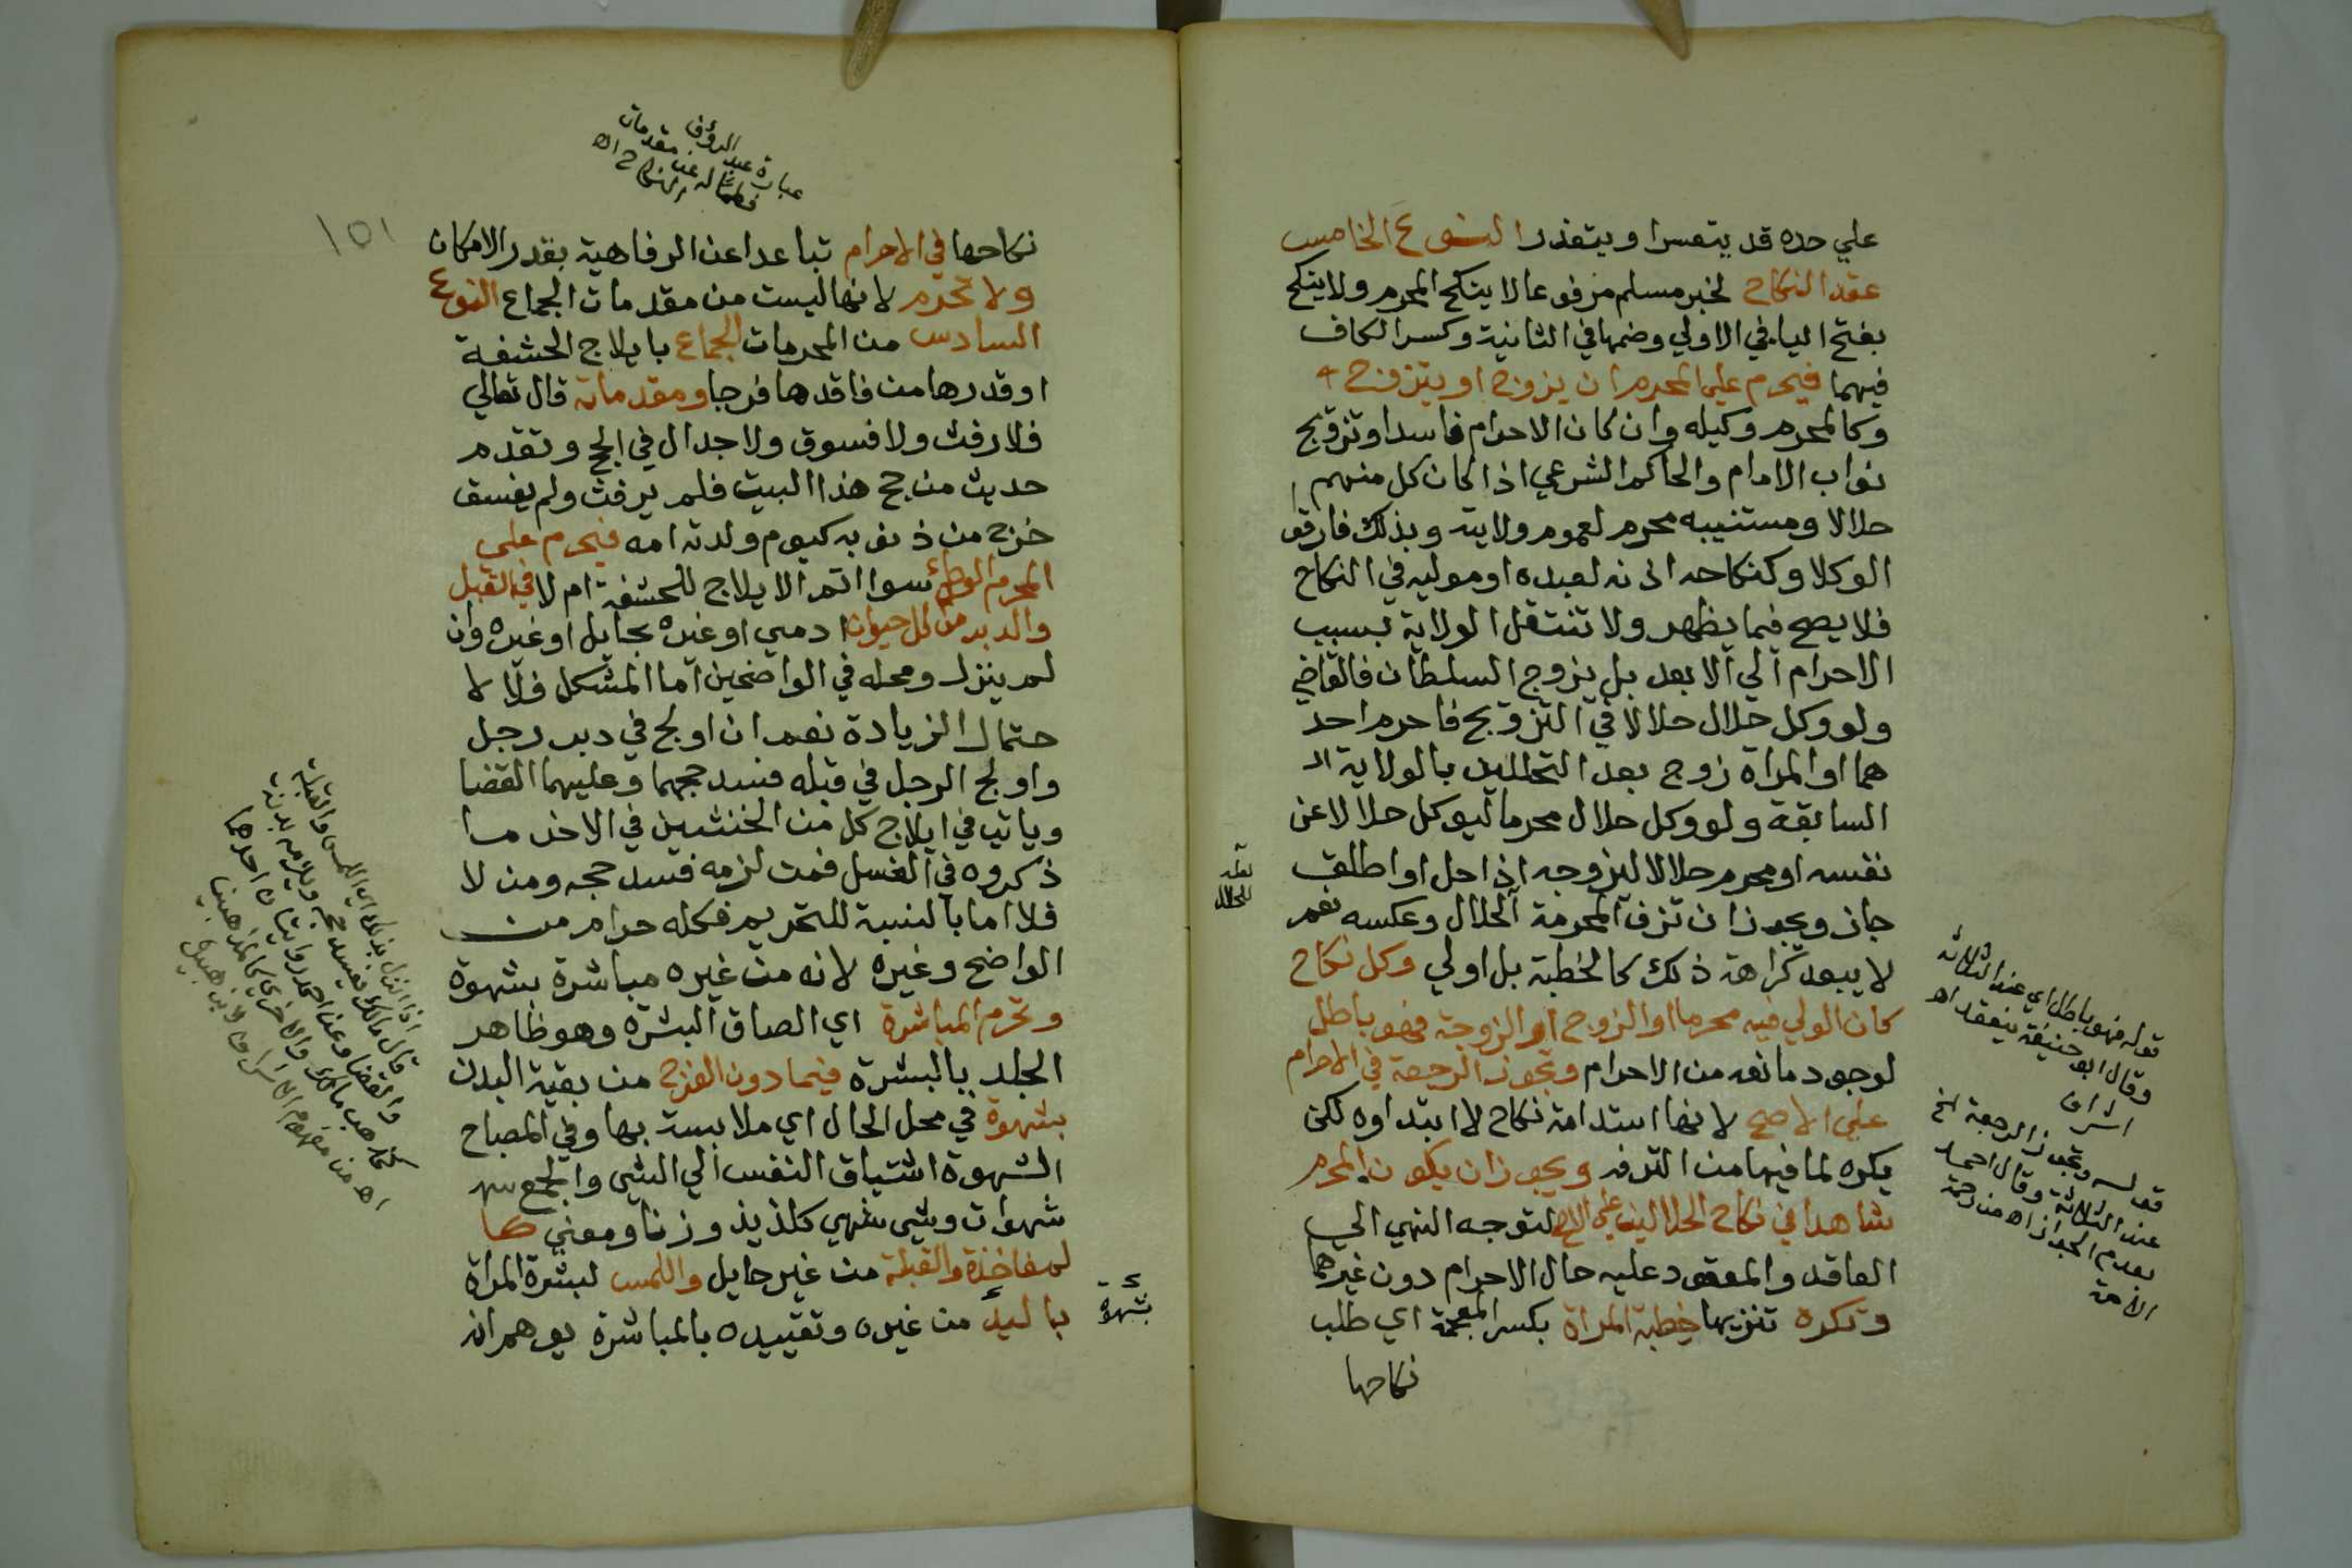 علي حده قد يتعسر او يتعذر النوع الخامس
عقد النكاح لخبر مسلم مرفوعا لا ينكح المحرم ولا ينكح
بفتح اليا في الاولي وضمها في الثانية وكسر الكاف
فيهما فيحرم علي المحرم ان يزوج او يتزوج
وكالمحرم وكيله وان كان الاحرام فاسدا وتزويج
نواب الامام والحاكم الشرعي اذا كان كل منهم
حلالا ومستنيبه محرم لعموم ولايته وبذلك فارقو
الوكلا وكنكاحه اذنه لعبده او موليه في النكاح
فلا يصح فيما يظهر ولا تنتقل الولاية بسبب
الاحرام الي الابعد بل يزوج السلطان فالقاضي
ولو وكل حلال حلالا في التزويج فاحرم احد
هما او المراة زوج بعد التحللين بالولاية ال
السابقة ولو وكل حلال محرما ليوكل حلالا عن
نفسه او محرم حلالا ليزوجه اذا احل او اطلق
جاز ويجوز ان تزف المحرمة للحلال وعكسه نعم
لا يبعد كراهة ذلك كالخطبة بل اولي وكل نكاح
كان الولي فيه محرما او الزوج او الزوجة فهو باطل
لوجود مانعه من الاحرام وتجوز الرجعة في الاحرام
علي الاصح لانها استدامة نكاح لا ابتداوه لكن
يكره لما فيها من الترفه ويجوز ان يكون المحرم
شاهدا في نكاح الحلالين علي الاصح لتوجه النهي الي
العاقد والمعقود عليه حال الاحرام دون غيرهما
وتكره تنزيها خطبة المراة بكسر المعجمة اي طلب
نكاحها
للحلال
قوله فهو باطل اي عند الثلاثة
وقال ابو حنيفة ينعقد اه
اشراق
قوله وتجوز الرجعة الخ
عند الثلاثة وقال احمد
بعدم الجواز اه من رحمة
الامة
عبارة عبد الرؤف
مقدمات
النكاح اه
١٥١
نكاحها في الاحرام تباعدا عن الرفاهية بقدر الامكان
ولا تحرم لانها ليست من مقدمات الجماع النوع
السادس من المحرمات الجماع بايلاج الحشفة
او قدرها من فاقدها فرجا ومقدماته قال تعالي
فلا رفث ولا فسوق ولا جدال في الحج وتقدم
حديث من حج هذا البيت فلم يرفث ولم يفسق
خرج من ذنوبه كيوم ولدته امه فيحرم علي
المحرم الوطئ سوا اتم الايلاج للحشفة ام لا في القبل
والدبر من كل حيوان ادمي او غيره بحايل او غيره وان
لم ينزل ومحله في الواضحين اما المشكل فلا لا
حتمال الزيادة نعم ان اولج في دبر رجل
واولج الرجل في قبله فسد حجهما وعليهما القضا
وياتي في ايلاج كل من الخنثيين في الاخر ما
ذكروه في الغسل فمن لزمه فسد حجه ومن لا
فلا اما بالنسبة للتحريم فكله حرام من
الواضح وغيره لانه من غيره مباشرة بشهوة
وتحرم المباشرة اي الصاق البشرة وهو ظاهر
الجلد بالبشرة فيما دون الفرج من بقية البدن
بشهوة في محل الحال اي ملابسة بها وفي المصباح
الشهوة اشتياق النفس الي الشي والجمع
شهوات وشي شهي كلذيذ وزنا ومعني كا
لمفاخذة والقبلة من غير حايل واللمس لبشرة المراة
باليد من غيره وتقييده بالمباشرة يوهم انه
بشهوة
اذا انزل بذلك اي اللمس والقبلة
قال مالك يفسد حجه ويلزمه بدنة
والقضا وعن احمد روايتان احدهما
كمذهب مالك والاخري كمذهبنا